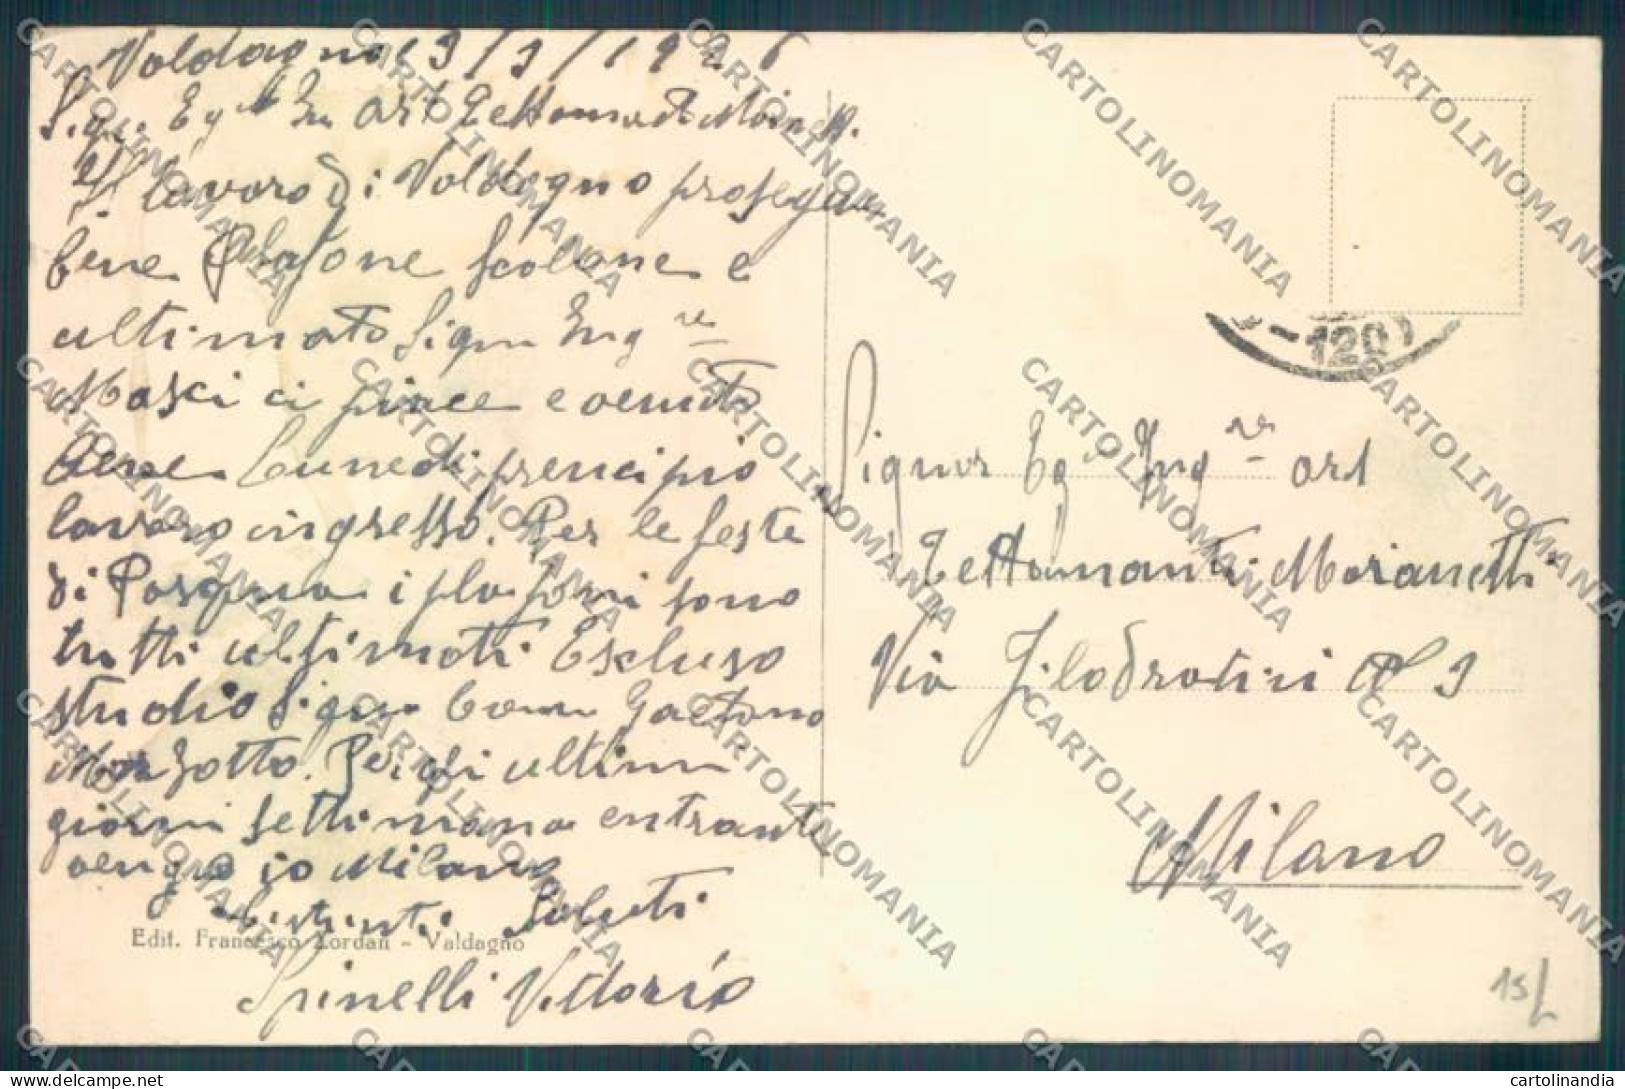 Valdagno 13/3/1926
Sign. Eg. Ing art Tettamanti Moian
Il lavoro di Valdagno prosegue
bene Plafone scalone e
ultimato Sign Ing re
Masci ci piace e venuto
bene Lunedi prencipio
lavoro ingresso. Per le feste
di Pasqua i plafoni sono
tutti ultimati Escluso
studio Sign Com Gaetano
Marzotto. Per gli ultimi
giorni settimana entrante
vengo io Milano
Distinti Saluti
Spinelli Vittorio
Edit. Francesco Zordan - Valdagno
-120
Signor Eg Ing re art
Tettamanti Moranetti
Via Filodratici N 3
Milano
15/
CARTOLINOMANIA
cartolinandia
delcampe.net